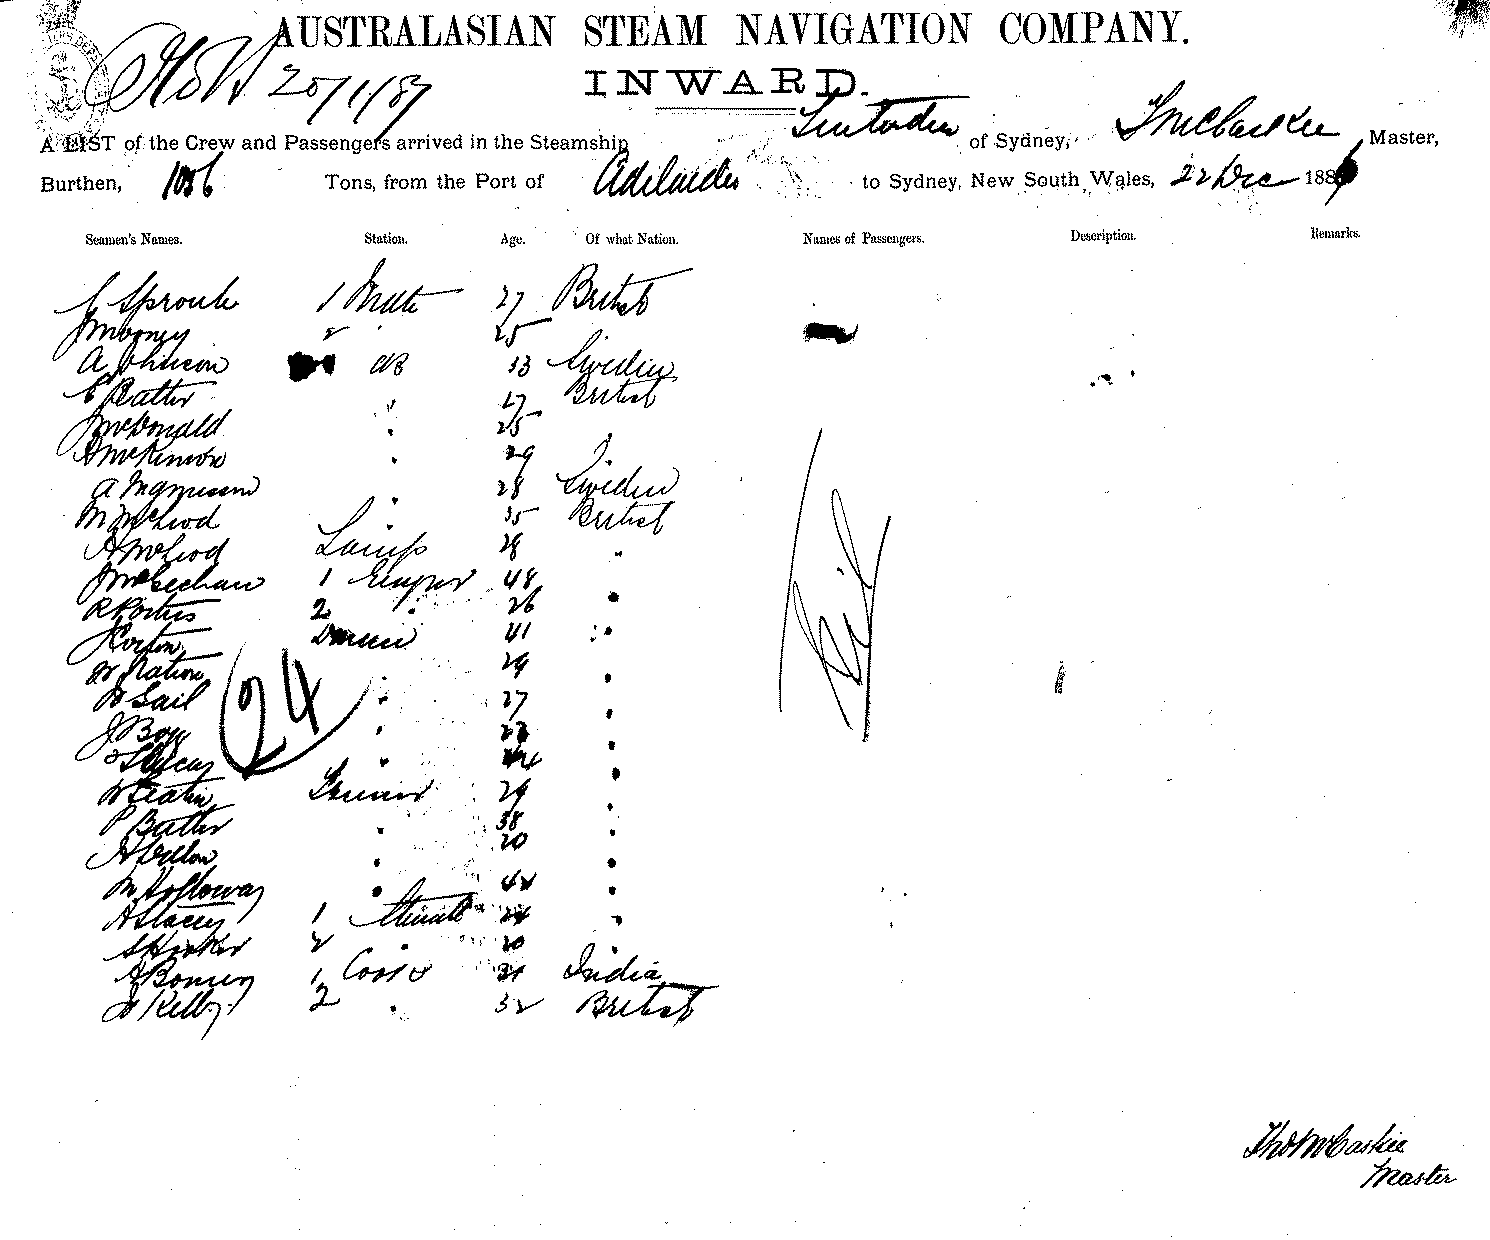 AUSTRALASIAN STEAM NAVIGATION COMPANY.
20/1/87
INWARD.
A LIST of the Crew and Passengers arrived in the Steamship of Sydney, T McCaskie Master,
Burthen, 1056 Tons, from the Port of Adelaide to Sydney, New South Wales, 22 Dec 1886
Seamen's Names. Station. Age. Of what Nation. Names of Passengers. Description. Remarks.
Sproule 1 Mate 27 British
J Mooney 2 " 25
A Johnson AB 33 Sweden
27 British
J McDonald " 25
A McKinnon " 29
A Magnusson " 28 Sweden
M McLeod " 35 British
A McLeod Lamps 28 "
J McGechan 1 48 "
R Porteus 2 " 26 "
J Horton 41 "
W Nation 29 "
W Sail " 27 "
J Boyz " "
" "
29 "
P Butler " 38 "
A Dillon " 20 "
M Holloway " "
A Stacey 1 "
S Hooker 2 " 20 "
A Bonsey 1 Cook India
Kelly 2 " 32 British
24
Nil
Thos McCaskie
Master